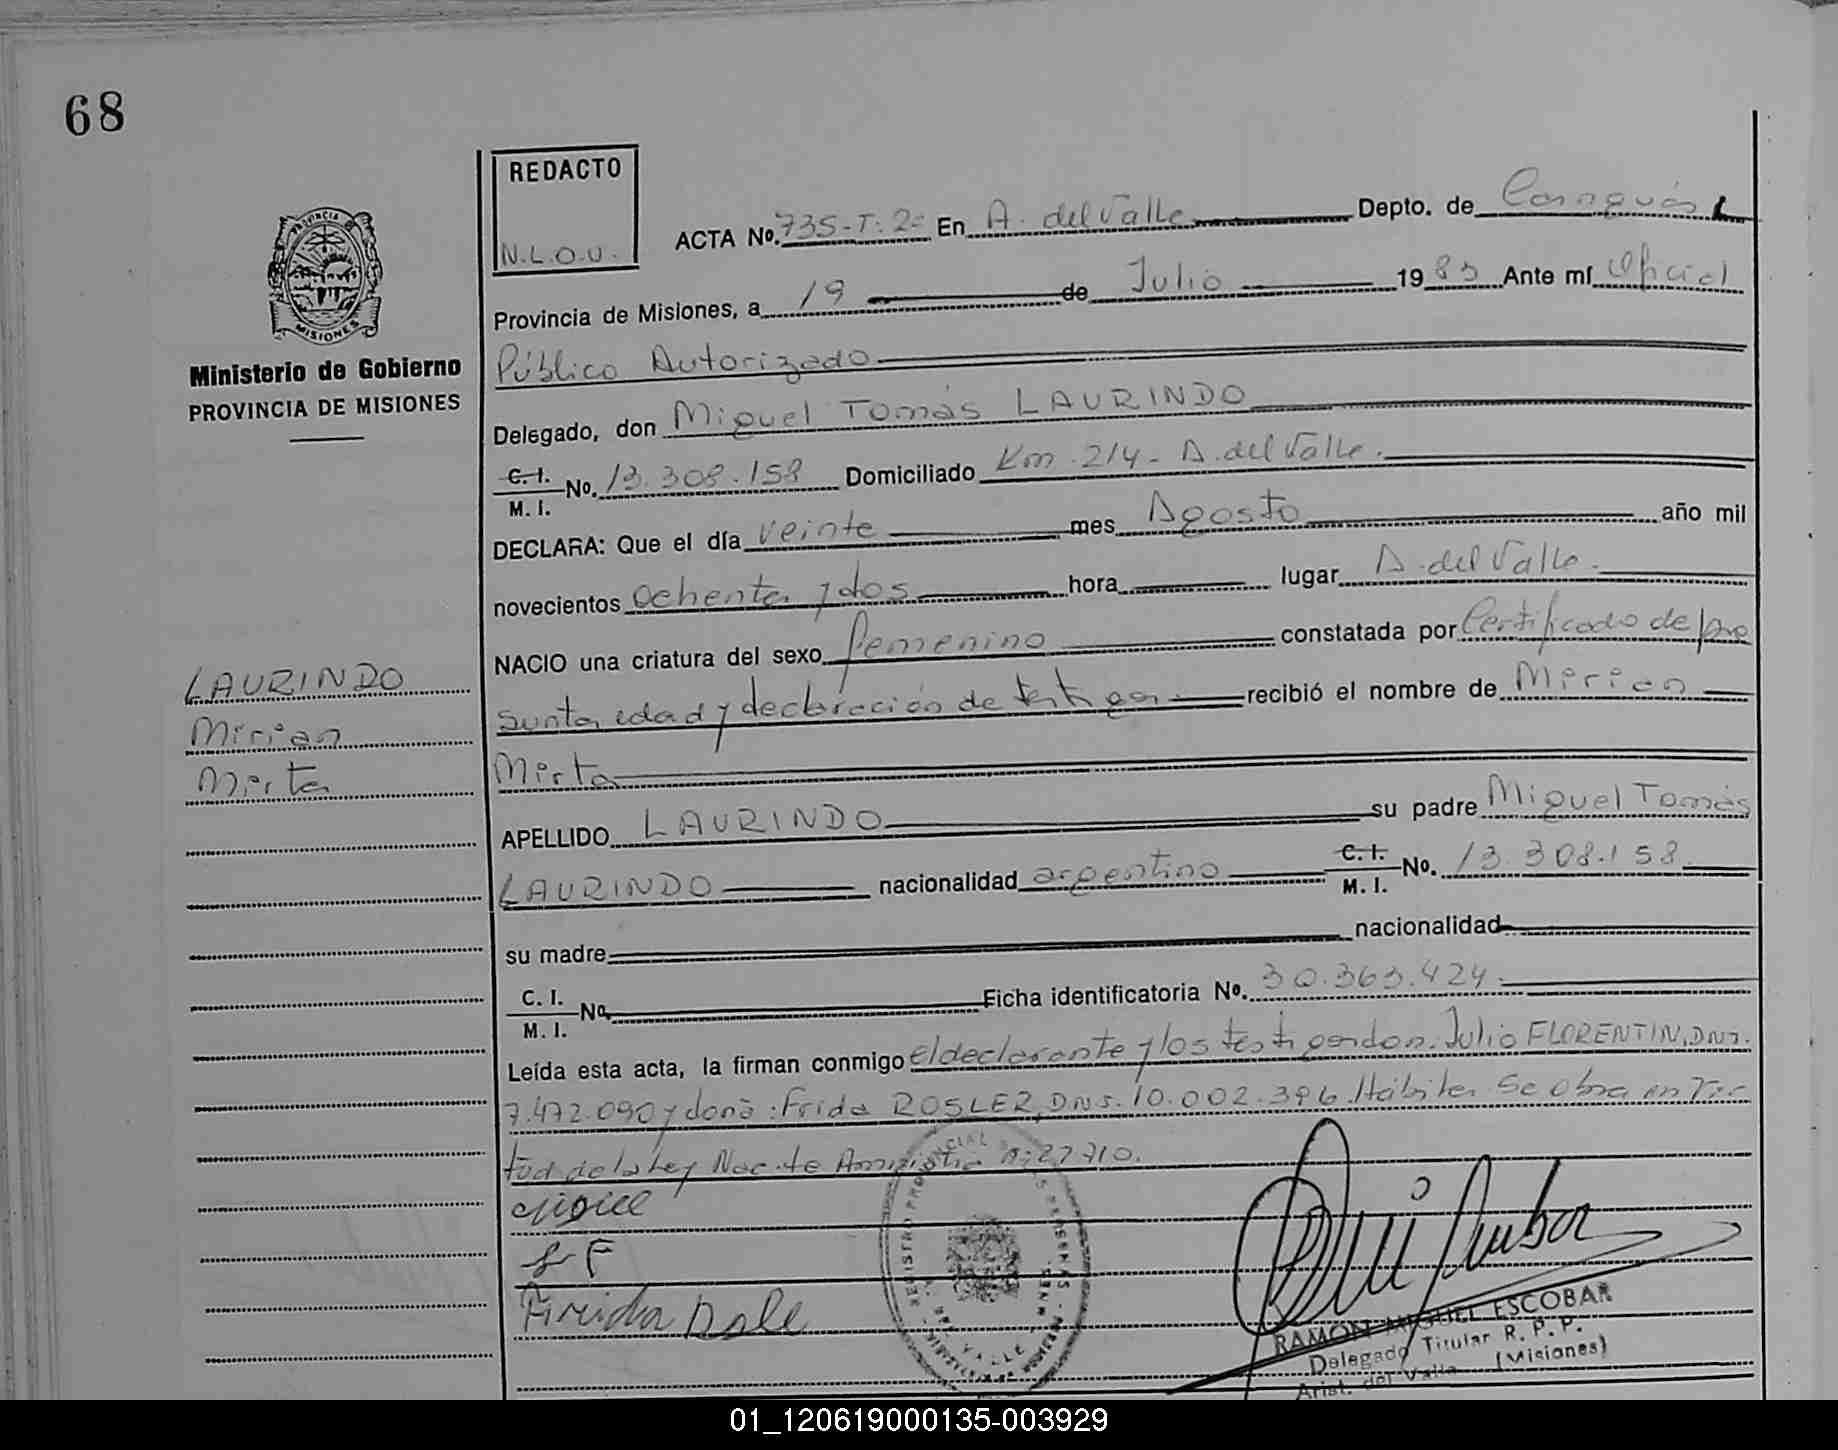 68
REDACTO
N.L.O.U.
ACTA No. 735-T: 2= En A. del Valle Depto. de Cainguás
Provincia de Misiones, a 19 de Julio 1983 Ante mí Oficial
Público Autorizado
Delegado, don Miguel Tomás LAURINDO
C. I. No. 13.308.158 Domiciliado Km. 214 - A. del Valle.
M. I.
DECLARA: Que el día Veinte mes Agosto año mil
novecientos Ochenta y dos hora lugar A. del Valle.
NACIO una criatura del sexo femenino constatada por Certificado de pre
sunta edad y declaración de testigos recibió el nombre de Mirian
Mirta
APELLIDO LAURINDO su padre Miguel Tomás
LAURINDO nacionalidad argentino C. I. No. 13.308.158
M. I.
su madre nacionalidad
C. I. No. Ficha identificatoria No. 30.363.424
M. I.
Leída esta acta, la firman conmigo el declarante y los testigos don. Julio FLORENTIN, DNI.
7.472.090 y doña: Frida ROSLER, DNI. 10.002.396 Hábiles Se obra en vir
tud de la Ley Nac. de Amnistia n: 22710.
PROVINCIA
MISIONES
Ministerio de Gobierno
PROVINCIA DE MISIONES
LAURINDO
Mirian
Mirta
REGISTRO PROVINCIAL DE LAS PERSONAS
RAMON MIGUEL ESCOBAR
Delegado Titular R. P. P.
Arist. del Valle (Misiones)
01_120619000135-003929